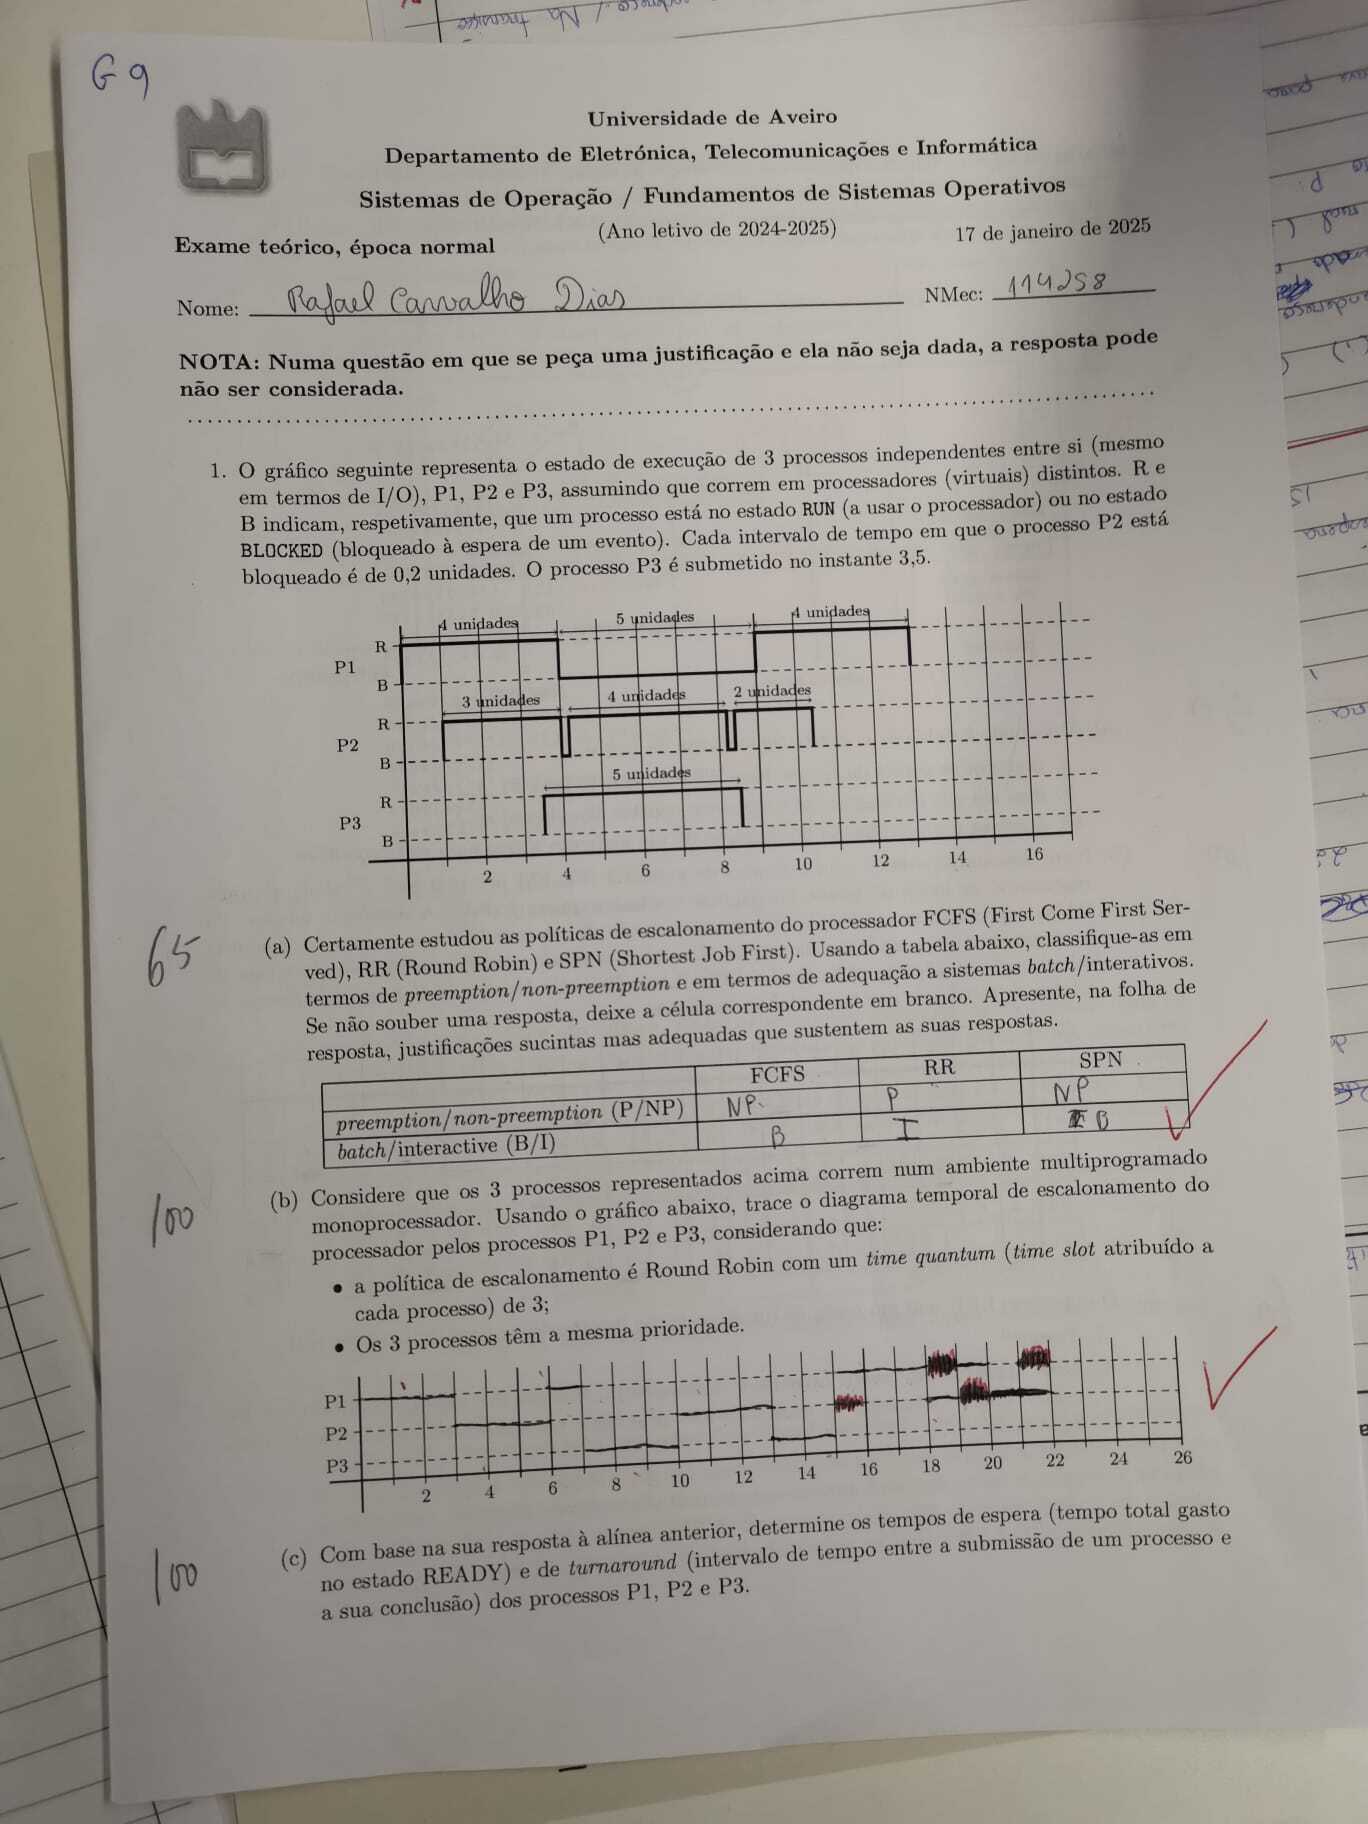 G 9
Universidade de Aveiro
Departamento de Eletrónica, Telecomunicações e Informática
Sistemas de Operação / Fundamentos de Sistemas Operativos
(Ano letivo de 2024-2025)
Exame teórico, época normal
17 de janeiro de 2025
Nome: Rafael Carvalho Dias
NMec: 114258
NOTA: Numa questão em que se peça uma justificação e ela não seja dada, a resposta pode
não ser considerada.
1. O gráfico seguinte representa o estado de execução de 3 processos independentes entre si (mesmo
em termos de I/O), P1, P2 e P3, assumindo que correm em processadores (virtuais) distintos. R e
B indicam, respetivamente, que um processo está no estado RUN (a usar o processador) ou no estado
BLOCKED (bloqueado à espera de um evento). Cada intervalo de tempo em que o processo P2 está
bloqueado é de 0,2 unidades. O processo P3 é submetido no instante 3,5.
4 unidades 5 unidades 4 unidades
R
P1
B
3 unidades 4 unidades 2 unidades
R
P2
B
5 unidades
R
P3
B
2 4 6 8 10 12 14 16
65
(a) Certamente estudou as políticas de escalonamento do processador FCFS (First Come First Ser-
ved), RR (Round Robin) e SPN (Shortest Job First). Usando a tabela abaixo, classifique-as em
termos de preemption/non-preemption e em termos de adequação a sistemas batch/interativos.
Se não souber uma resposta, deixe a célula correspondente em branco. Apresente, na folha de
resposta, justificações sucintas mas adequadas que sustentem as suas respostas.
FCFS RR SPN
preemption/non-preemption (P/NP) NP P NP
batch/interactive (B/I) B I B
100
(b) Considere que os 3 processos representados acima correm num ambiente multiprogramado
monoprocessador. Usando o gráfico abaixo, trace o diagrama temporal de escalonamento do
processador pelos processos P1, P2 e P3, considerando que:
• a política de escalonamento é Round Robin com um time quantum (time slot atribuído a
cada processo) de 3;
• Os 3 processos têm a mesma prioridade.
P1
P2
P3
2 4 6 8 10 12 14 16 18 20 22 24 26
100
(c) Com base na sua resposta à alínea anterior, determine os tempos de espera (tempo total gasto
no estado READY) e de turnaround (intervalo de tempo entre a submissão de um processo e
a sua conclusão) dos processos P1, P2 e P3.